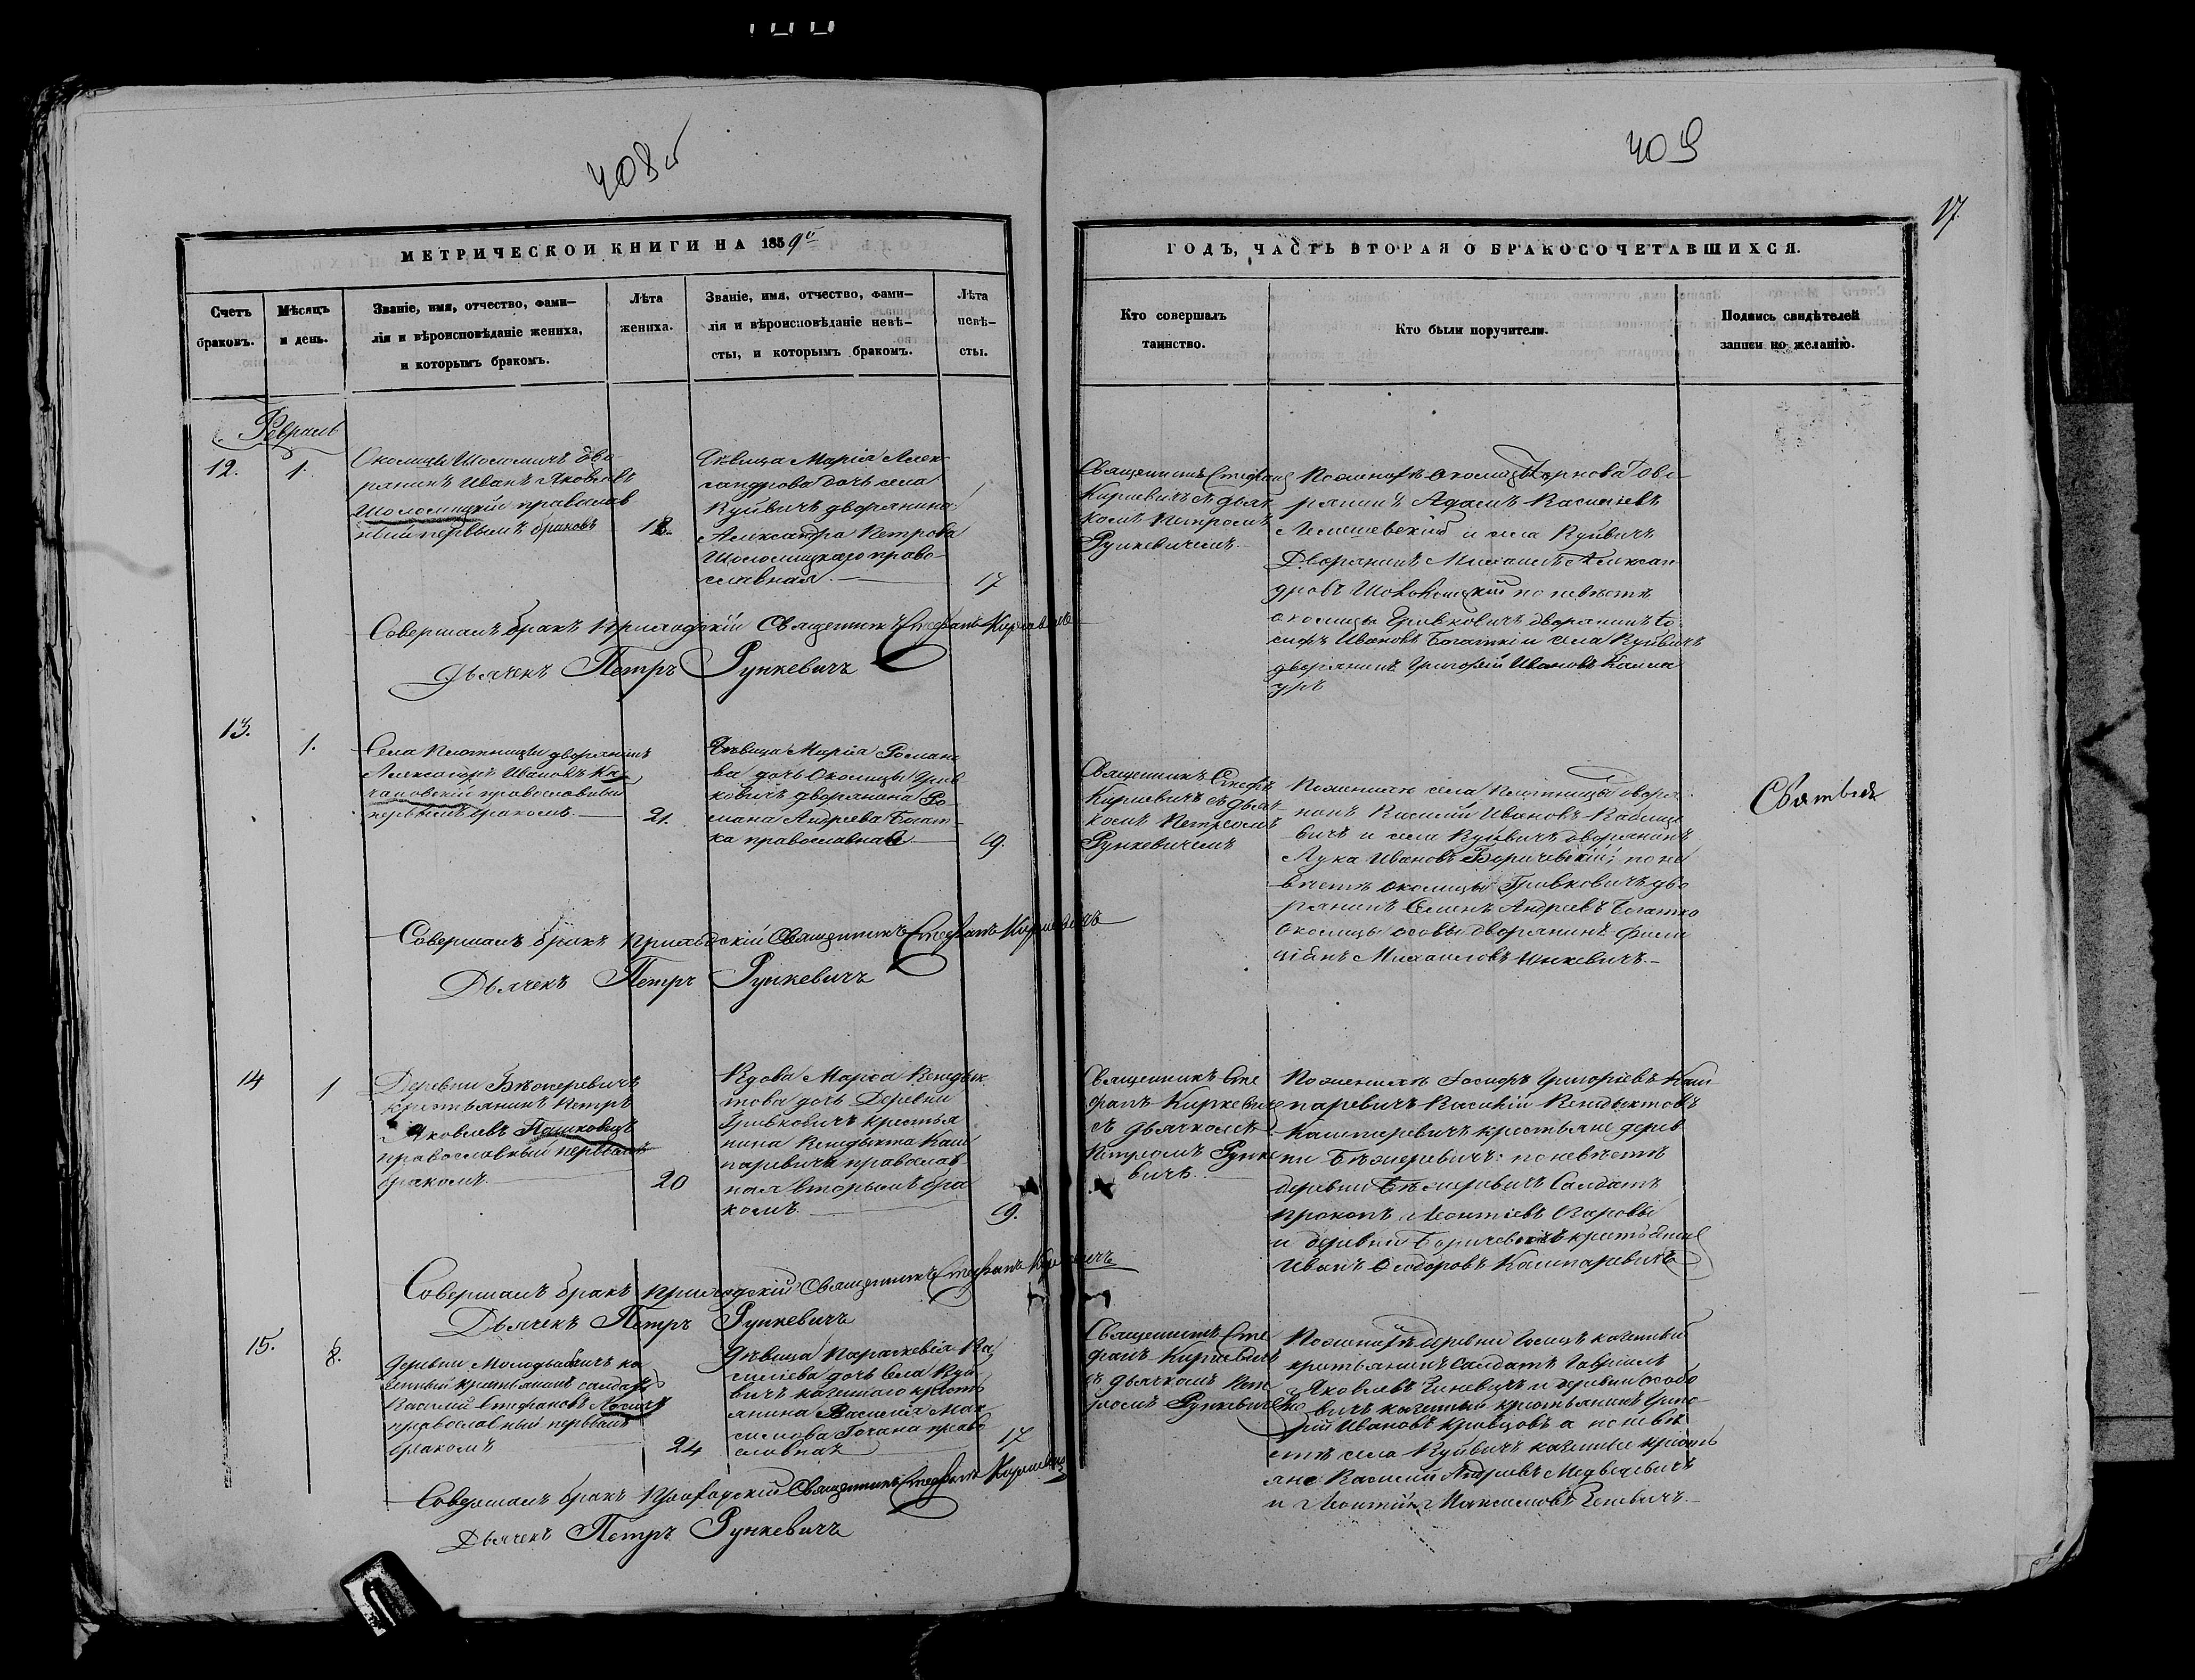 408 об
409
17
МЕТРИЧЕСКОЙ КНИГИ НА 1859й
ГОДЪ, ЧАСТЬ ВТОРАЯ О БРАКОСОЧЕТАВШИХСЯ.
Счетъ браковъ.
Мѣсяцъ и день.
Званіе, имя, отчество, фами-
лія и вѣроисповѣданіе жениха,
и которымъ бракомъ.
Лѣта
жениха.
Званіе, имя, отчество, фами-
лія и вѣроисповѣданіе невѣ-
сты, и которымъ бракомъ.
Лѣта
невѣ-
сты.
Кто совершалъ
таинство.
Кто были поручители.
Подпись свидѣтелей
записи по желанію.
Февраль
12.
1.
Околицы Шоломичъ дво
рянинъ Иванъ Яковлевъ
Шоломицкій православ
ный первымъ бракомъ
18.
Дѣвица Марія Алек
сандрова дочь села
Куйвичъ дворянина
Александра Петрова
Шоломицкаго право-
славная.
17
Священникъ Стефанъ
Киркевичъ съ дьяч
комъ Петромъ
Рункевичемъ.
По женихѣ околицы дво-
рянинъ Адамъ Васильевъ
и села Куйвичъ
Дворянинъ Михаилъ Алексан
дровъ Шоломицкій по невѣстѣ
околицы Гривковичъ дворянинъ Іо
сифъ Ивановъ Богатко и села Куйвичъ
дворянинъ Григорій Ивановъ
Совершалъ бракъ Приходскій Священникъ Стефанъ Киркевичъ
Дьячекъ Петръ Рункевичъ
13.
1.
Села Плотницы дворянинъ
Александръ Ивановъ Ка
чановскій православный
первымъ бракомъ
21.
Дѣвица Марія Романо
ва дочь Околицы Грив
ковичъ дворянина Ро-
мана Андреева Богат-
ка православная
19.
Священникъ Стефанъ
Киркевичъ съ дьяч-
комъ Петромъ
Рункевичемъ
По женихѣ села Плотницы дворя-
нинъ Василій Ивановъ
вичъ и села Куйвичъ дворянинъ
Лука Ивановъ Боричевскій; по не
вѣстѣ околицы Гривковичъ дво
рянинъ Семенъ Андреевъ Богатко
Околицы Особы дворянинъ
Михаиловъ
Совершалъ бракъ Приходскій Священникъ Стефанъ Киркевичъ
Дьячекъ Петръ Рункевичъ
14
1
Деревни
крестьянинъ Петръ
Яковлевъ Пашковецъ
православный первымъ
бракомъ.
20
Вдова Марія Венедык
това дочь Деревни
Гривковичъ крестья
нина Венедыкта Каш
паревича православ
ная вторымъ бра
комъ.
19.
Священникъ Сте
фанъ Киркевичъ
съ дьячкомъ
Петромъ Рунке
вичъ.
По женихѣ Іосифъ Григоріевъ Каш-
паревичъ Василій Венедыктовъ
Кашпаревичъ крестьяне дерев
ни по невѣстѣ
деревни Солдатъ
Прокопъ Леонтіевъ
и деревни Боричевичъ крестьянинъ
Иванъ Ѳеодоровъ Кашпаревичъ
Совершалъ бракъ Приходскій Священникъ Стефанъ Киркевичъ
Дьячекъ Петръ Рункевичъ
15.
8.
Деревни Молодьбичъ ка
зенный крестьянинъ солдатъ
Василій Стефановъ
православный первымъ
бракомъ
24
Дѣвица Параскевія Ва
силіева дочь Села Куй
вичъ казеннаго кресть
янина Василія Мак
симова право
славная
17
Священникъ Сте
фанъ Киркевичъ
съ дьячкомъ Пет
ромъ Рункевичъ
По женихѣ деревни казенный
крестьянинъ Солдатъ Гавріилъ
Яковлевъ и деревни Особо
вичъ казенный крестьянинъ Григо
рій Ивановъ Кравцовъ а по невѣ
стѣ села Куйвичъ казенные кресть
яне Василій Андреевъ Медведевичъ
и Леонтій Максимовъ
Совершалъ бракъ Приходскій Священникъ Стефанъ Киркевичъ
Дьячекъ Петръ Рункевичъ